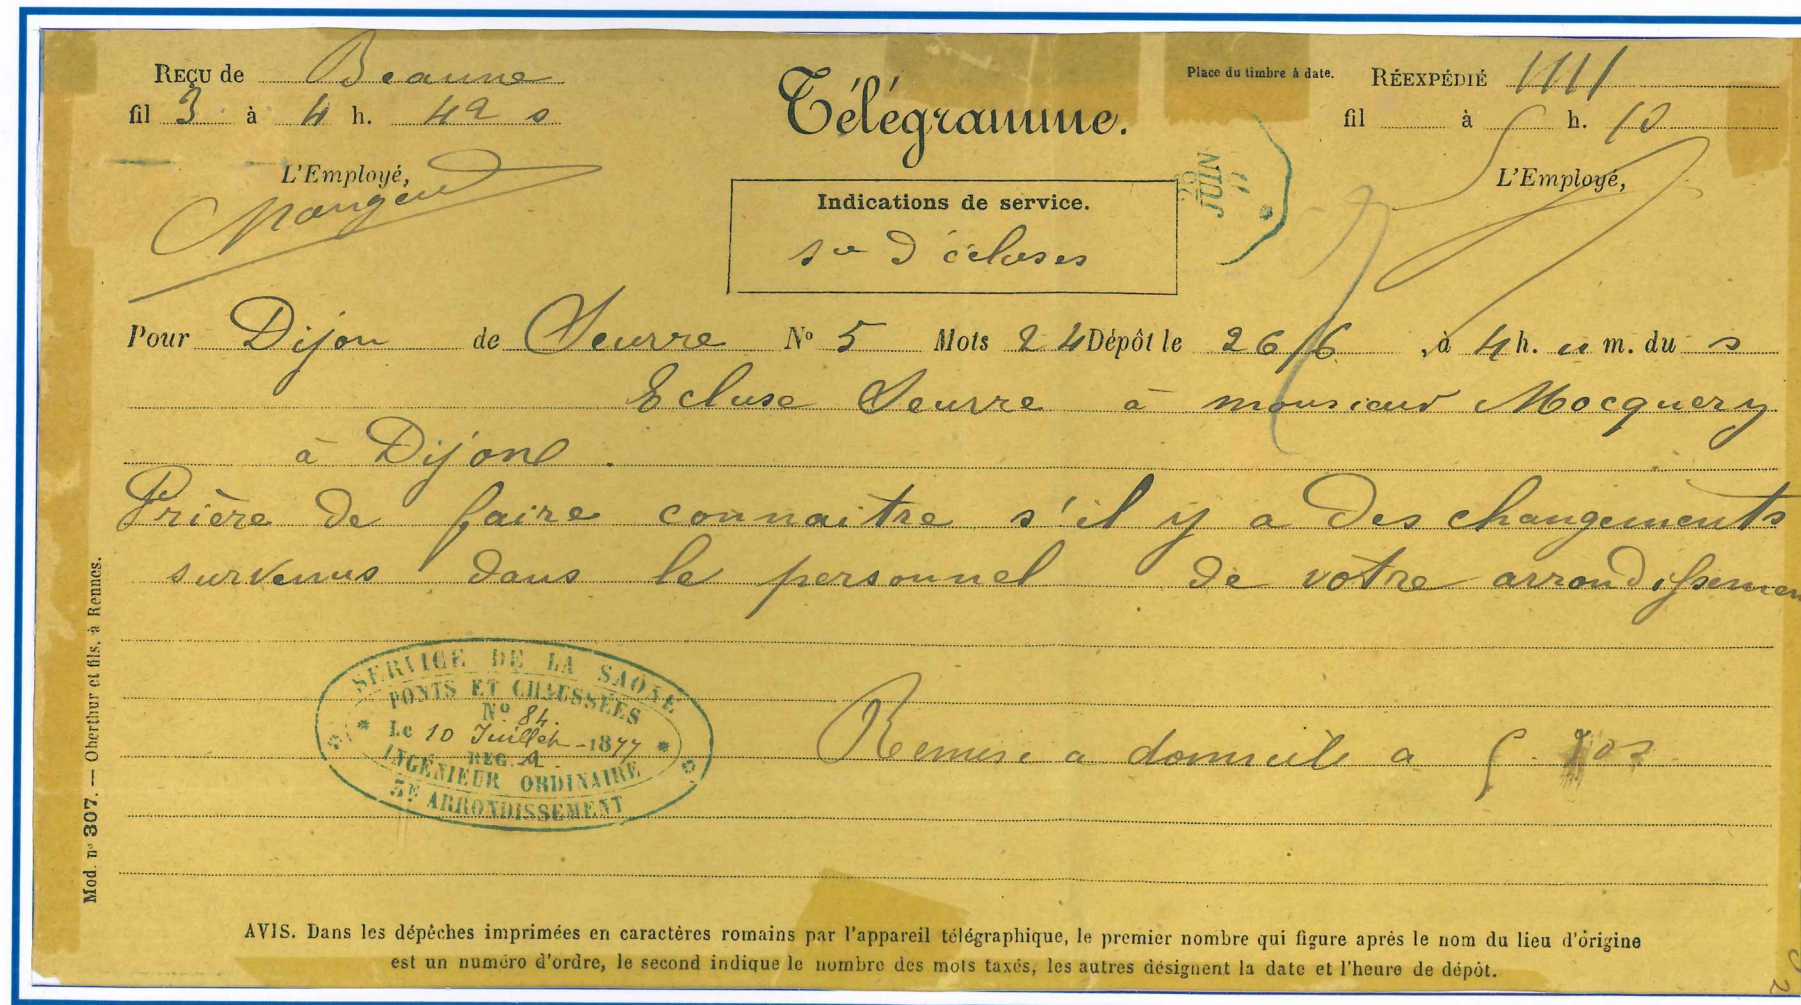 REÇU de Beaune
fil 3 à 4 h. 42 s
L'Employé,
Télégramme.
Place du timbre à date.
RÉEXPÉDIÉ
fil à 5 h. 10
L'Employé,
26
JUIN
77
Indications de service.
sce d'écluses
Pour Dijon de Seurre N° 5 Mots 24 Dépôt le 26/6 à 4 h. m. du s
Ecluse Seurre à monsieur Mocquery
à Dijon.
Prière de faire connaitre s'il y a des changements
survenus dans le personnel de votre arrondissemen
SERVICE DE LA SAONE
PONTS ET CHAUSSÉES
N° 84.
Le 10 Juillet 1877
REG. A
INGÉNIEUR ORDINAIRE
3E ARRONDISSEMENT
Remise a domicile a 5
Mod. n° 307. — Oberthur et fils, à Rennes.
AVIS. Dans les dépêches imprimées en caractères romains par l'appareil télégraphique, le premier nombre qui figure après le nom du lieu d'origine
est un numéro d'ordre, le second indique le nombre des mots taxés, les autres désignent la date et l'heure de dépôt.